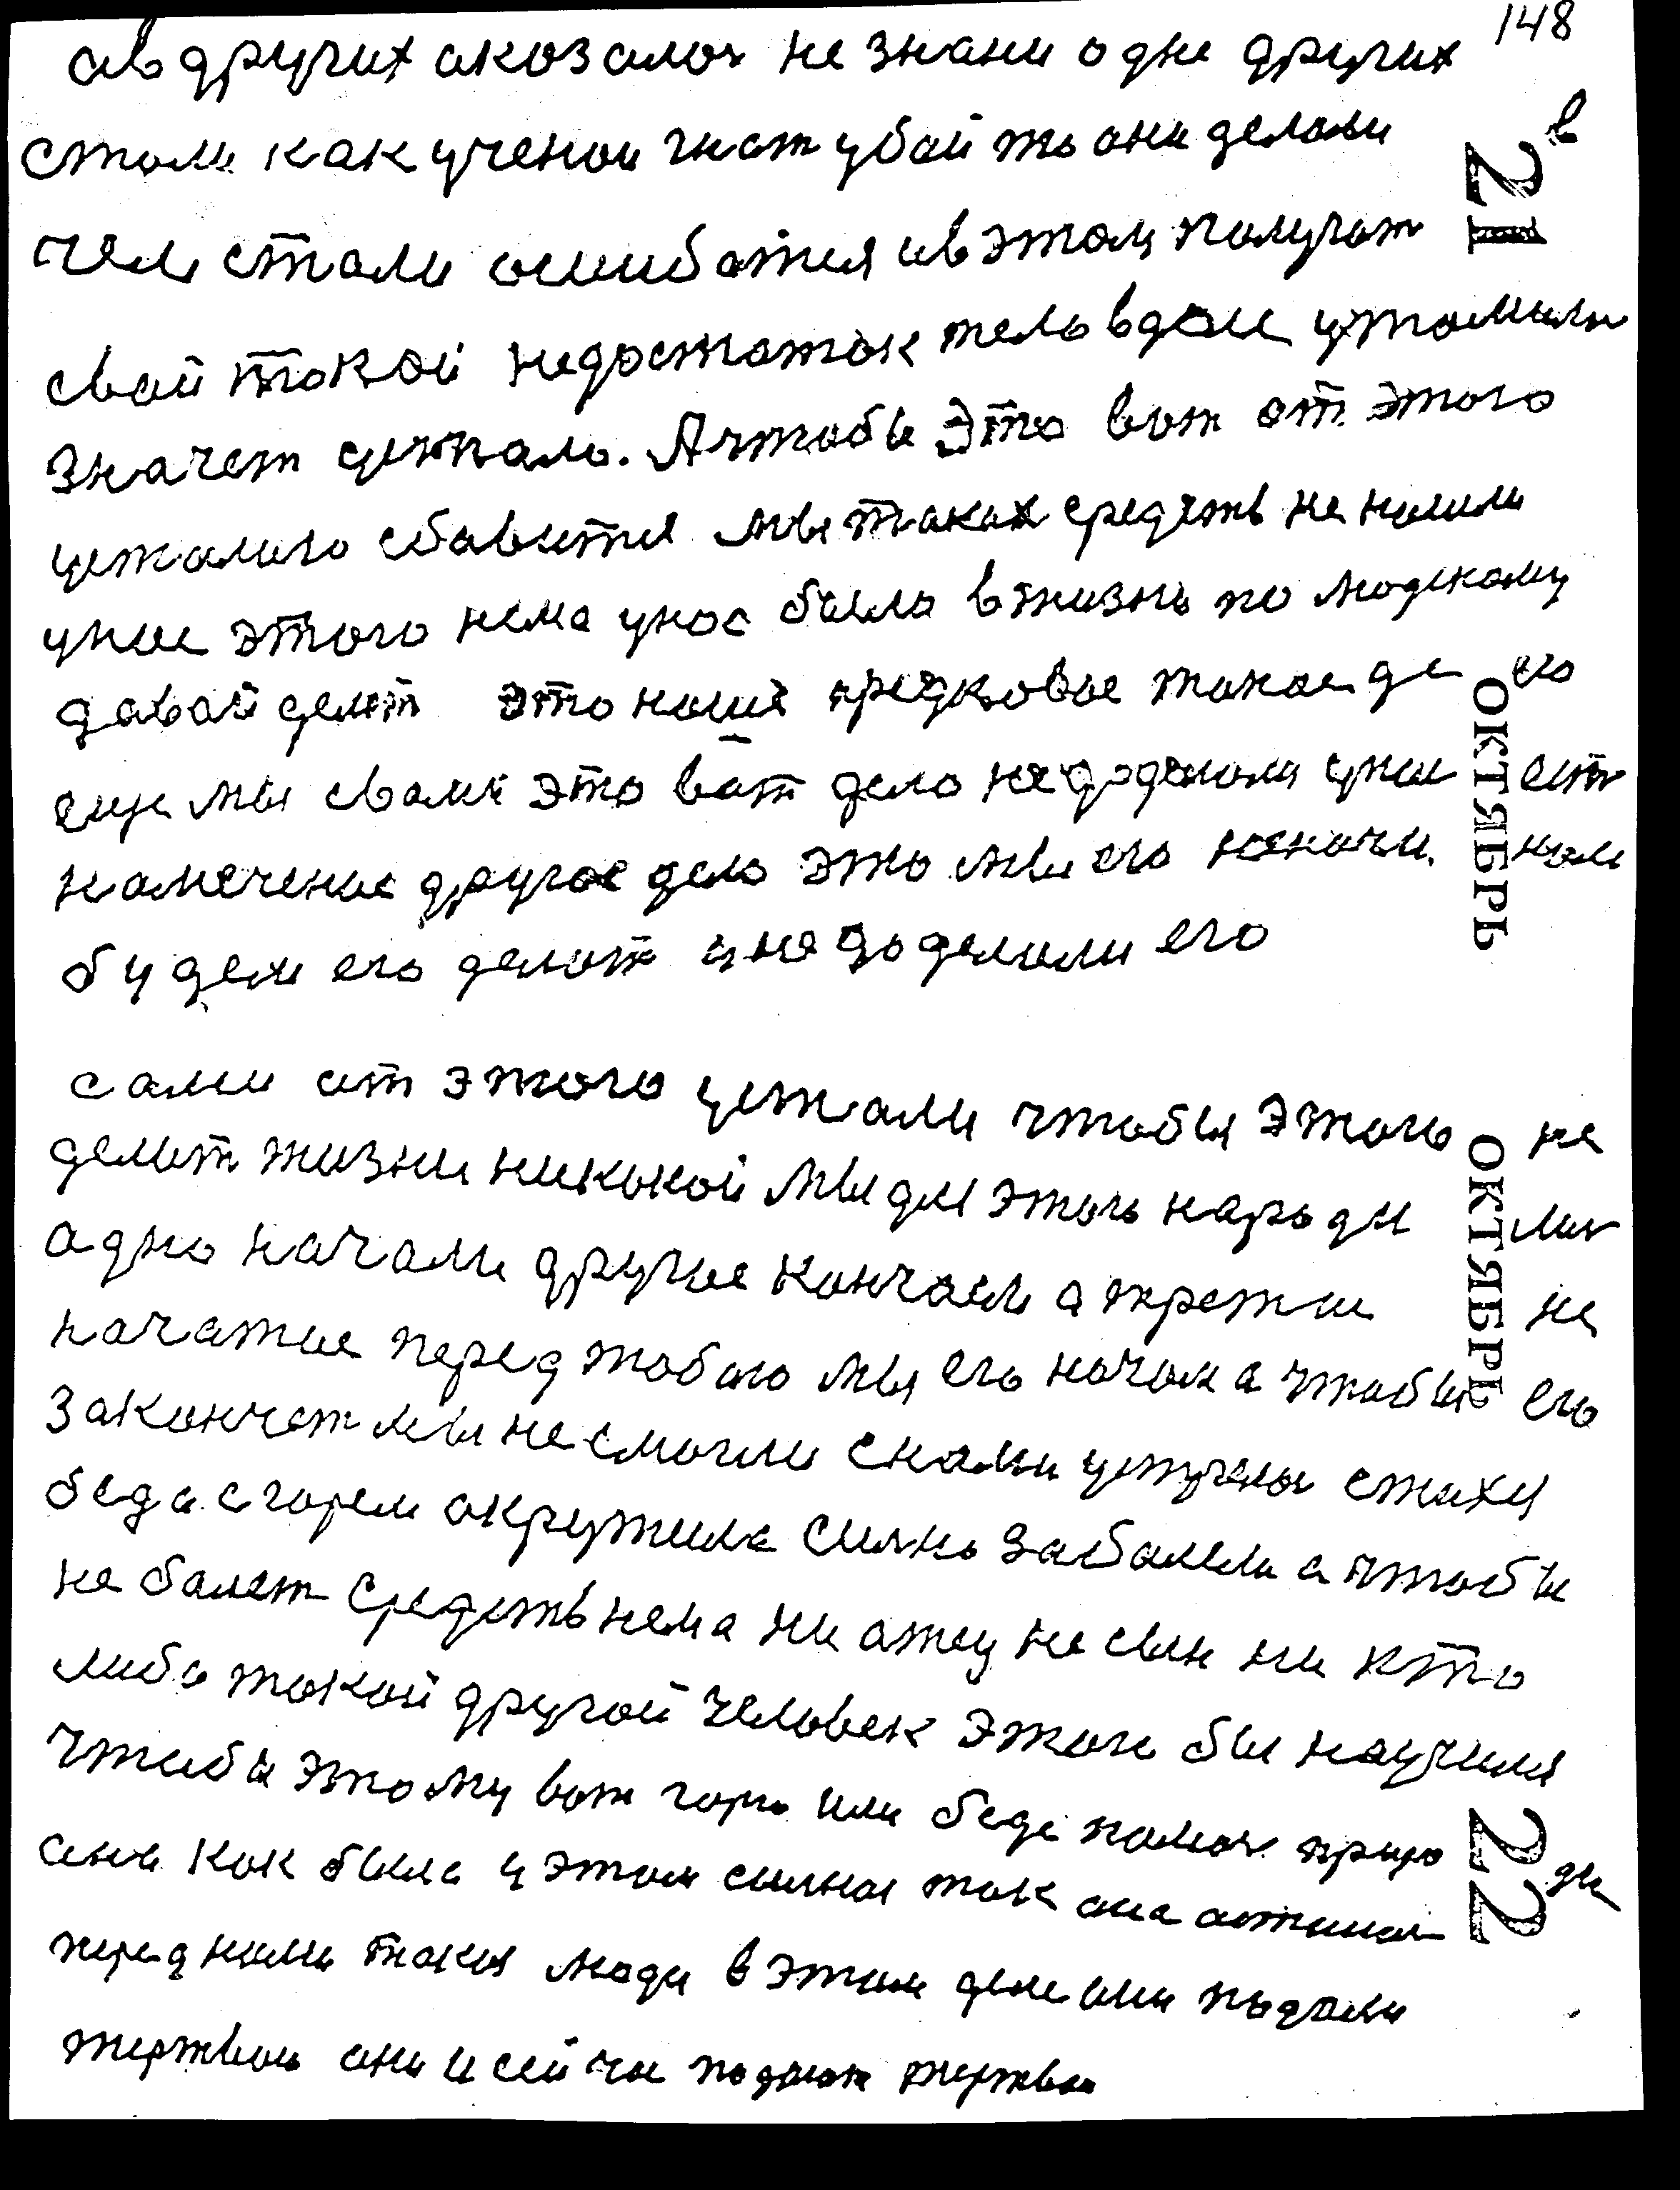 148
ав других оказалос не знани одне других
стали как ученои гнат убай то они делали в
чем стали ошибатся ив этом получат
свой токой недостаток тело вдаль утомили
значет упало. А чтобы это вот от этого
усталого сбавится мы таких средств не нашли
унас этого нема унас было в жизнь по людскому
давай делат это наше предковое такое де ло
еще мы свами это вот дело недоделали унас ест
намеченое другое дело это мы его начи наем
будем его делат и не доделали его
сами от этого устали чтобы этого не
делат жизни никокой мы для этого народи лис
одно начали другое кончаем а третие не
начатые перед тобою мы его начом а чтобы его
закончет мы не смогли снами случилос стиху
беда сгорем окружила силно заболели а чтобы
не болет средств нема ни отец не сын ни кто
либо такой другой человек этого бы научился
чтобы этому вот горю или беде помоч приро ди
она как была и этом силная так она осталась
перед нами такия люди в этом деле они подали
жертвою они и сейчас подают жертвою
21
ОКТЯБРЬ
ОКТЯБРЬ
22